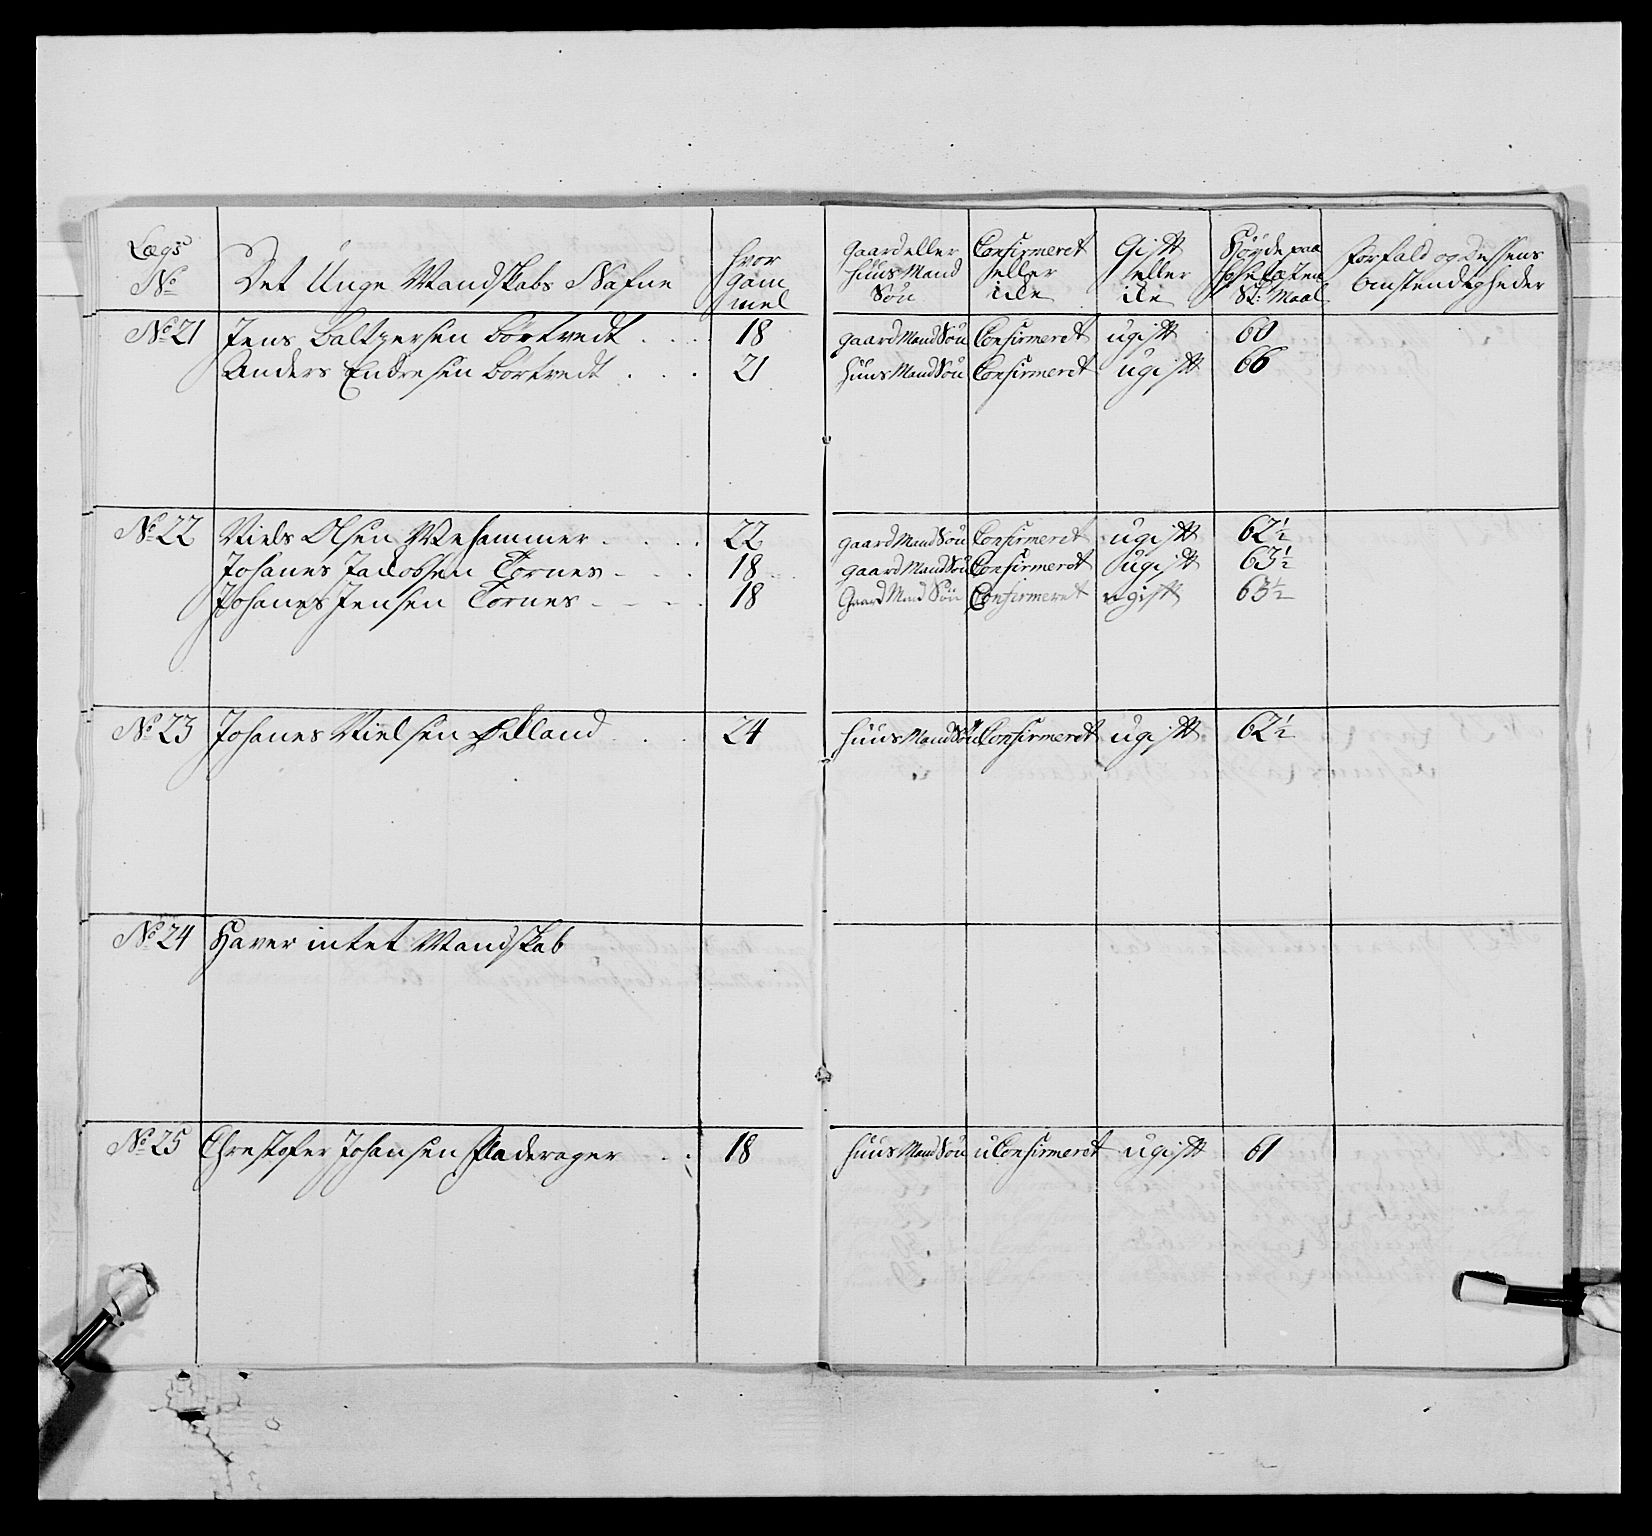 Lægs No
Det Unge Mandskabs Nafne
hvor Gam mel
Gaard eller Huus Mand Søn
Confirmeret eller icke
Gift eller icke
Høyde paa Sche læsten St: Maal
Forfald og Dessens Omstendigheder
No 21 Jens Baltzersen Børtvedt 18 gaard Mand Søn Confirmeret ugift 60
Anders Endresen Bortvedt 21 Huus Mand Søn Confirmeret ugift 66
No 22 Niels Olsen Wehammer 22 gaard Mand Søn Confirmeret ugift 62½
Johanes Jacobsen Tornes 18 gaard Mand Søn Confirmeret ugift 63½
Johanes Jensen Tornes 18 Gaard Mand Søn Confirmeret ugift 63½
No 23 Johanes Nielsen 24 Huus Mand Søn Confirmeret ugift 62½
No 24 Haver intet Mandskab
No 25 Chrestofer Johansen Fladerager 18 Huus Mand Søn uConfirmeret ugift 61